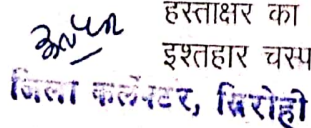 हस्ताक्षर का
इश्तहार चस्प
जिला कलेक्टर, सिरोही